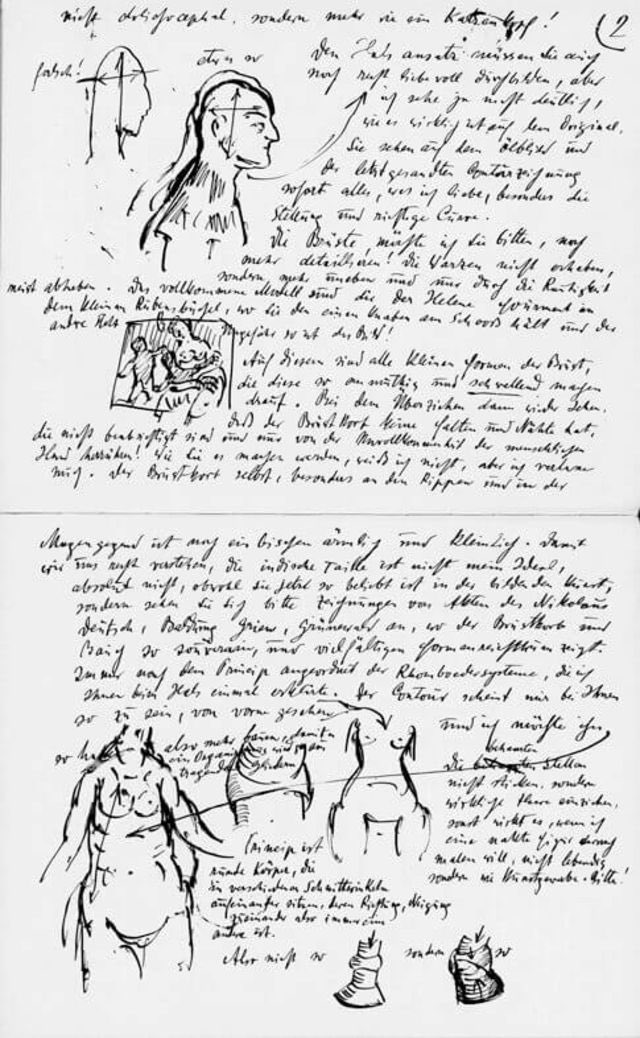 nicht dolichocephal, sondern mehr wie ein Katzenkopf!
2
falsch!
etwa so
Den Hals ansatz müssen Sie auch
noch recht liebevoll durchbilden, aber
ich sehe ja nicht deutlich,
wie es wirklich ist auf dem Original.
Sie sehen auf dem Ölbild und
der letztgesandten Contourzeichnung
sofort alles, was ich liebe, besonders die
Stellung und richtige Curve.
Die Brüste, möchte ich Sie bitten, noch
mehr detaillieren! Die Warzen nicht erhaben,
sondern mehr uneben und nur durch die Rauhigkeit
meist abheben. Das vollkommene Modell sind die der Helene Fourment in
dem kleinen Rubensbüchel, wo sie den einen Knaben am Schooß hält und der
andre steht
Ungefähr so ist das Bild!
Auf diesem sind alle kleinen Formen der Brust,
die diese so anmuthig und schwellend machen
drauf. Bei dem Überziehen dann wieder sehen,
daß der Brustkorb keine Falten und Nähte hat,
die nicht beabsichtigt sind und nur von der Unvollkommenheit der menschlichen
Hand herrühren! Wie Sie es machen werden, weiß ich nicht, aber ich vertraue
mich. Der Brustkorb selbst, besonders an den Rippen und in der
Magengegend ist noch ein bischen ärmlich und kleinlich. Damit
wir uns recht verstehen, die indische Taille ist nicht mein Ideal,
absolut nicht, obwohl sie jetzt so beliebt ist in der bildenden Kunst,
sondern sehen Sie sich bitte Zeichnungen von Akten des Nikolaus
Deutsch, Baldung Grien, Grünewald an, wo der Brustkorb und
Bauch so souverain, und vielfältigen Formenreichthum zeigt.
Immer nach dem Princip angeordnet der Rhomboedersysteme, die ich
Ihnen beim Hals einmal erklärte. Der Contour scheint mir bei Ihnen
so zu sein, von vorne gesehen
und ich möchte ihn
so
also mehr bauen, damit
ein Organismus wird von
tragenden Gliedern
Die behaarten Stellen
nicht sticken, sondern
wirkliche Haare einziehen,
sonst wirkt es, wenn ich
eine nackte Figur darnach
malen will, nicht lebendig
sondern wie Kunstgewerbe. Bitte!
Princip ist
runde Körper, die
in verschiedenen Schnittwinkeln
aufeinander sitzen, deren Richtung, Neigung
zueinander also immer eine
andre ist.
Also nicht so sondern so